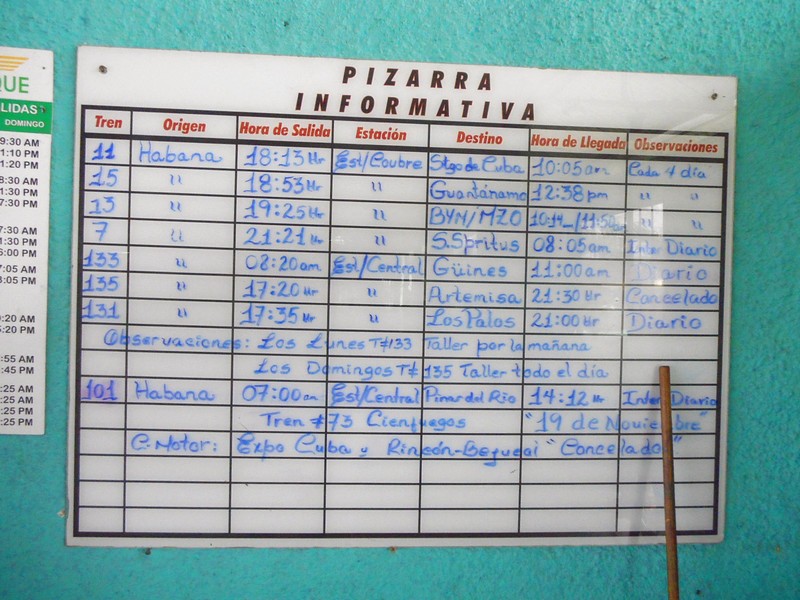 QUE
LIDAS
DOMINGO
9:30 AM
1:10 PM
1:20 PM
8:30 AM
1:30 PM
7:30 PM
7:30 AM
1:30 PM
6:00 PM
7:05 AM
3:05 PM
:20 AM
5:20 PM
:55 AM
:45 PM
:25 AM
:25 AM
:25 PM
:25 PM
PIZARRA
INFORMATIVA
Tren Origen Hora de Salida Estación Destino Hora de Llegada Observaciones
11 Habana 18:13 Hr Est/Coubre Stgo de Cuba 10:05am Cada 4 día
15 " 18:53 Hr " Guantánamo 12:38pm " "
13 " 19:25 Hr " BYN/MZO 10:14 / " "
7 " 21:21 Hr " S.Spritus 08:05am Inter Diario
133 " 02:20am Est/Central Güines 11:00am Diario
135 " 17:20 Hr " Artemisa 21:30 Hr Cancelado
131 " 17:35 Hr " Los Palos 21:00 Hr Diario
Observaciones: Los Lunes T#133 Taller por la mañana
Los Domingos T# 135 Taller todo el día
101 Habana 07:00am Est/Central Pinar del Río 14:12 Hr Inter Diario
Tren #73 Cienfuegos "19 de Noviembre"
C. Motor: Expo Cuba y Rincón- "Cancelado"